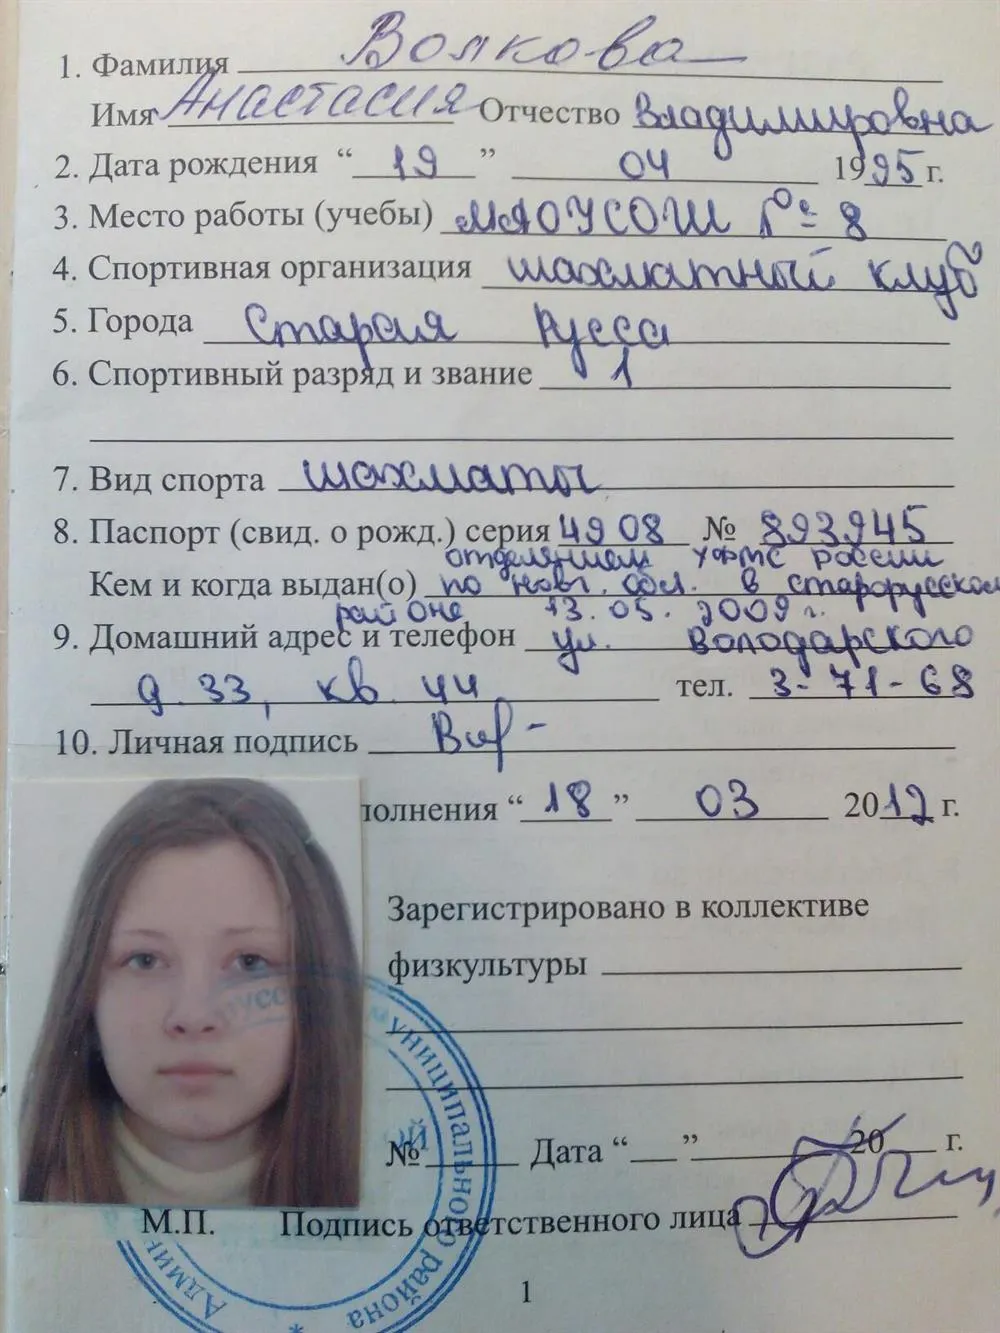 1. Фамилия Волкова
Имя Анастасия Отчество Владимировна
2. Дата рождения “ 19 ” 04 1995 г.
3. Место работы (учебы) МАОУСОШ №8
4. Спортивная организация шахматный клуб
5. Города Старая Русса
6. Спортивный разряд и звание 1
7. Вид спорта шахматы
8. Паспорт (свид. о рожд.) серия 4908 № 893945
отделением УФМС России
Кем и когда выдан(о) по новг. обл. в старорусском
районе 13.05.2009 г.
9. Домашний адрес и телефон ул. Володарского
д. 33, кв. 44 тел. 3-71-68
10. Личная подпись
полнения “ 18 ” 03 2012 г.
Зарегистрировано в коллективе
физкультуры
№ Дата “ ” 20 г.
М.П. Подпись ответственного лица
муниципального района
Админ
1